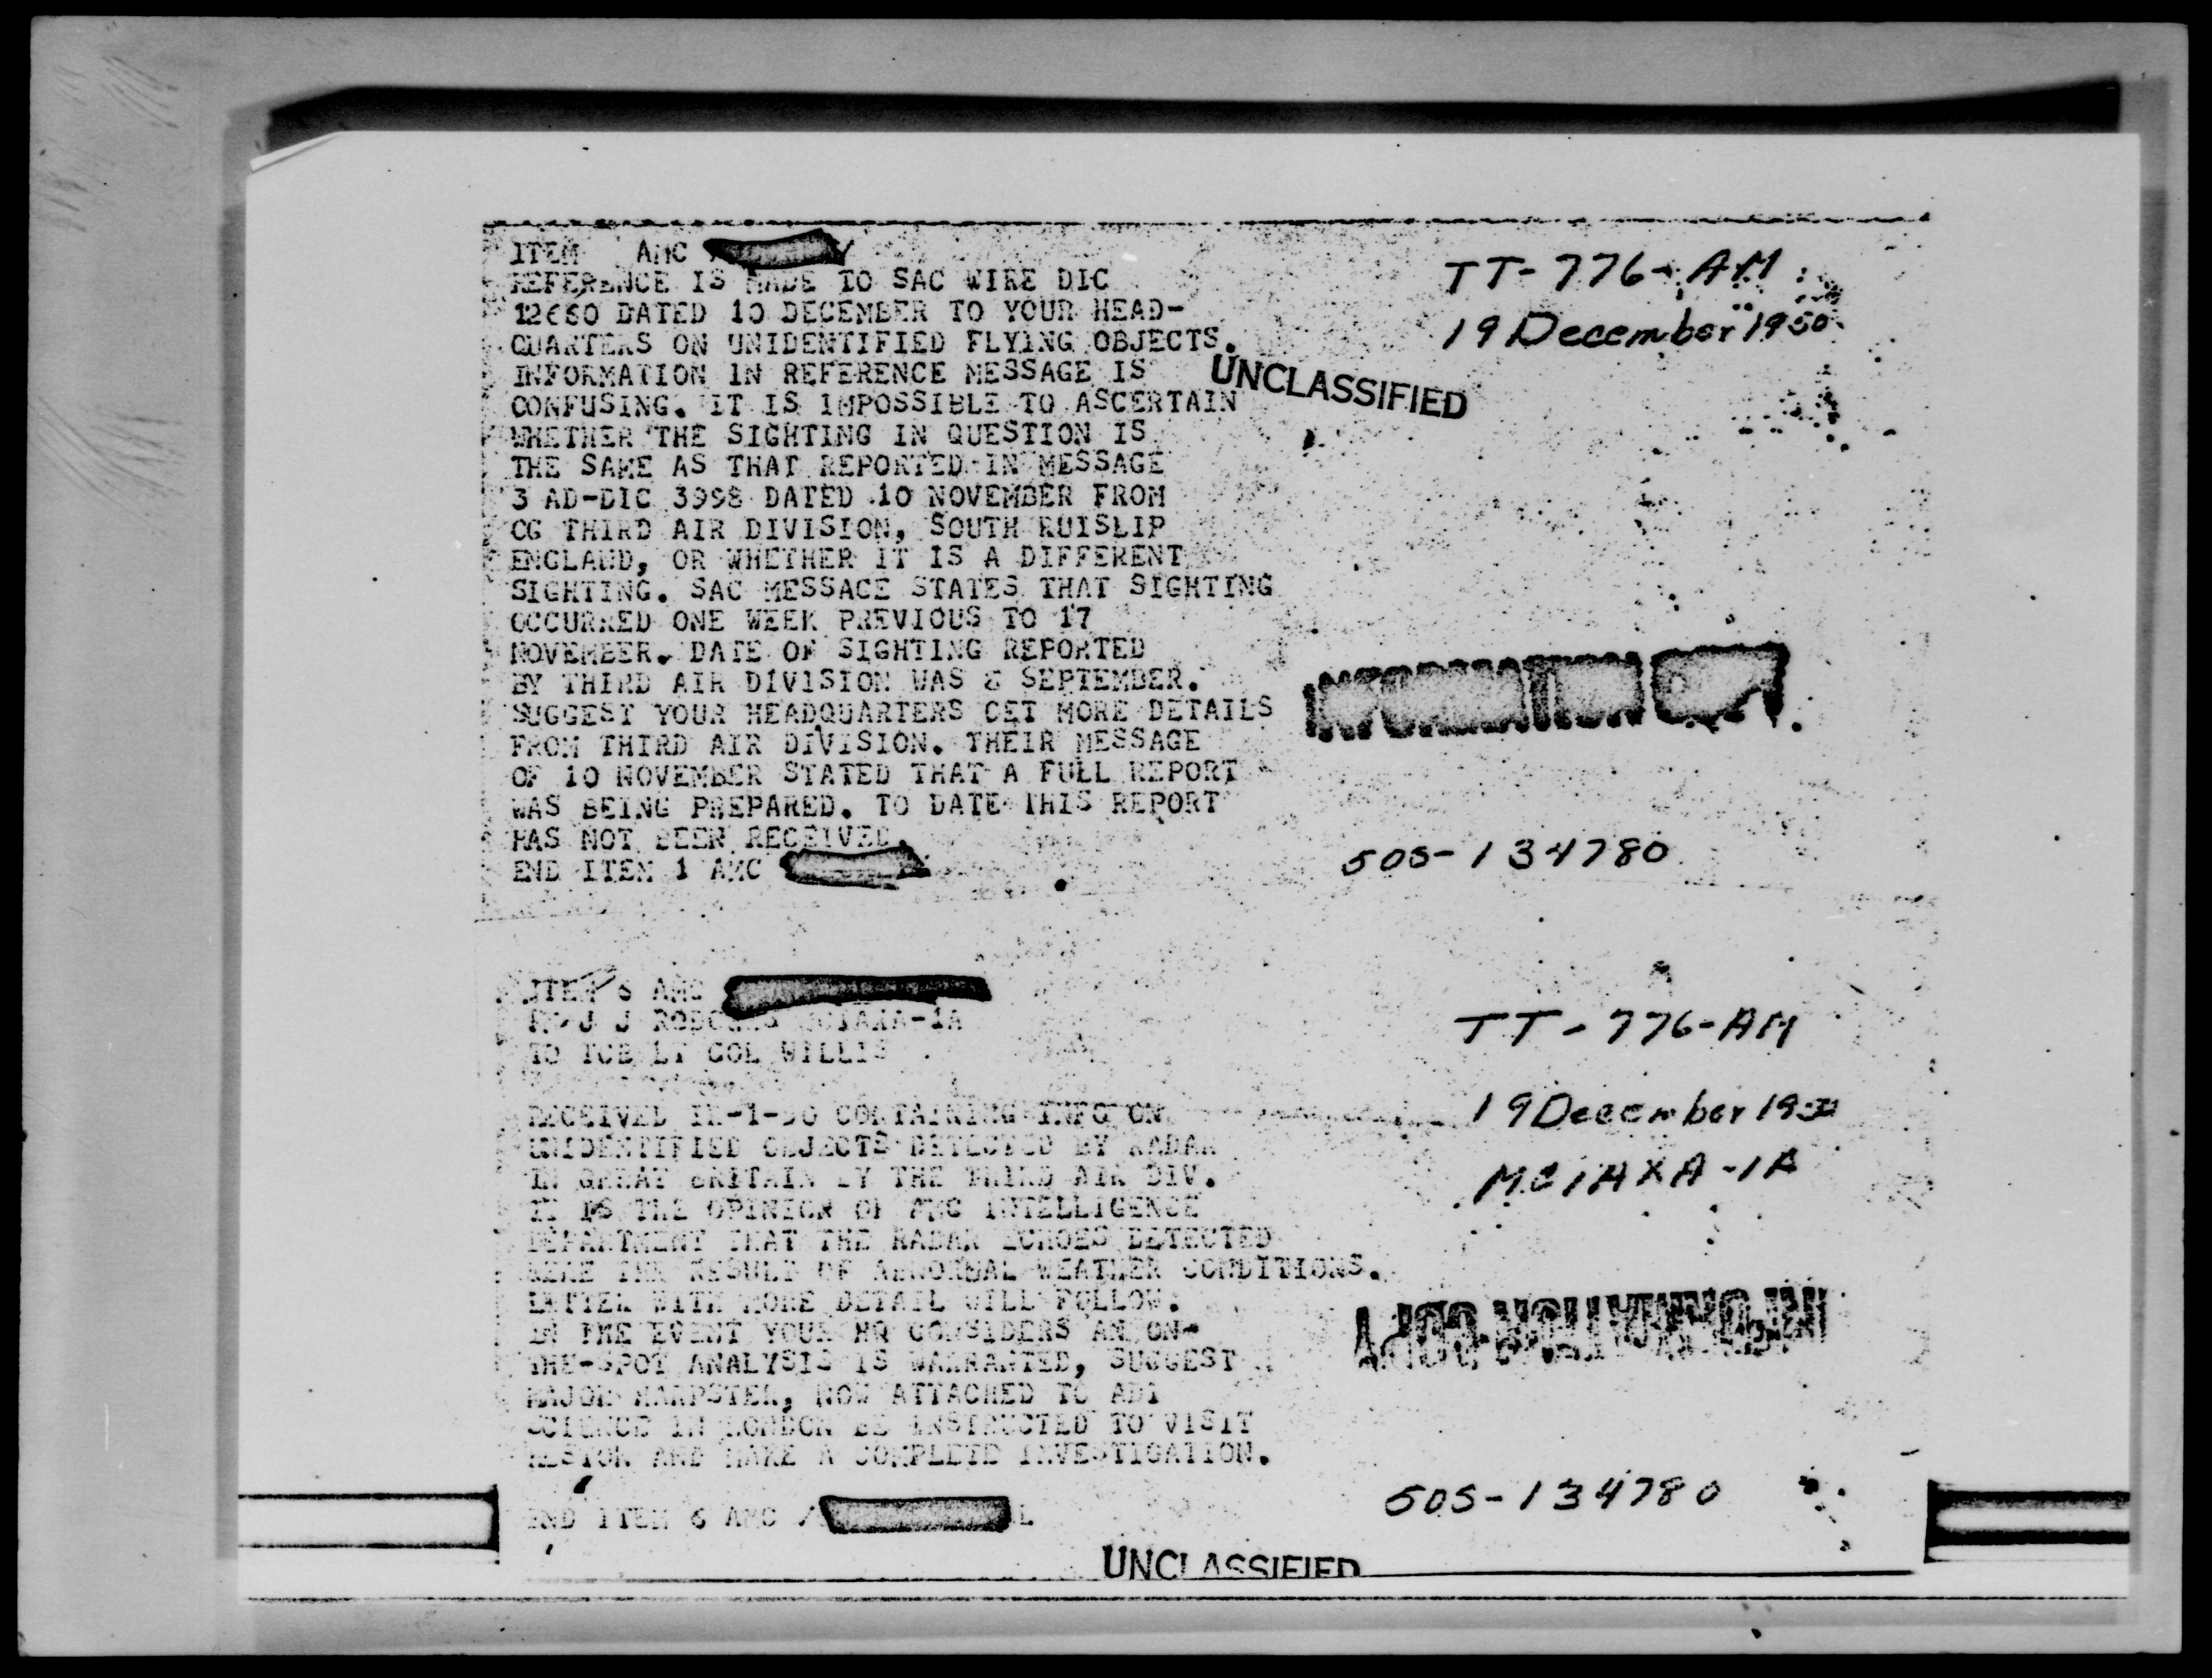 ITEM AMC
REFERENCE IS MADE TO SAC WIRE DIC
DATED 10 DECEMBER TO YOUR HEAD-
QUARTERS ON UNIDENTIFIED FLYING OBJECTS.
INFORMATION IN REFERENCE MESSAGE IS
CONFUSING. IT IS IMPOSSIBLE TO ASCERTAIN
WHETHER THE SIGHTING IN QUESTION IS
THE SAME AS THAT REPORTED IN MESSAGE
3 AD-DIC 3998 DATED 10 NOVEMBER FROM
CG THIRD AIR DIVISION, SOUTH RUISLIP
ENGLAND, OR WHETHER IT IS A DIFFERENT
SIGHTING. SAC MESSAGE STATES THAT SIGHTING
OCCURRED ONE WEEK PREVIOUS TO 17
NOVEMBER. DATE OF SIGHTING REPORTED
BY THIRD AIR DIVISION WAS 8 SEPTEMBER.
SUGGEST YOUR HEADQUARTERS GET MORE DETAILS
FROM THIRD AIR DIVISION. THEIR MESSAGE
OF 10 NOVEMBER STATED THAT A FULL REPORT
WAS BEING PREPARED. TO DATE THIS REPORT
HAS NOT BEEN RECEIVED.
END ITEM 1 AMC
TT-776-AM
19 December 1950
UNCLASSIFIED
INFORMATION COPY
505-134780
ITEM 6 AMC
J J
TO TCB LT COL WILLIS
RECEIVED CONTAINING INFO ON
UNIDENTIFIED OBJECTS DETECTED BY RADAR
IN GREAT BRITAIN BY THE THIRD AIR DIV.
IT IS THE OPINION OF AMC INTELLIGENCE
DEPARTMENT THAT THE RADAR ECHOES DETECTED
WERE THE RESULT OF ABNORMAL WEATHER CONDITIONS.
LETTER WITH MORE DETAIL WILL FOLLOW.
IN THE EVENT YOUR HQ CONSIDERS AN ON-
THE-SPOT ANALYSIS IS WARRANTED, SUGGEST
MAJOR HARPSTER, NOW ATTACHED TO ADI
SCIENCE IN LONDON BE INSTRUCTED TO VISIT
AND MAKE A COMPLETE INVESTIGATION.
END ITEM 6 AMC
TT-776-AM
19 December 1950
MCIAXA-1A
INFORMATION COPY
505-134780
UNCLASSIFIED